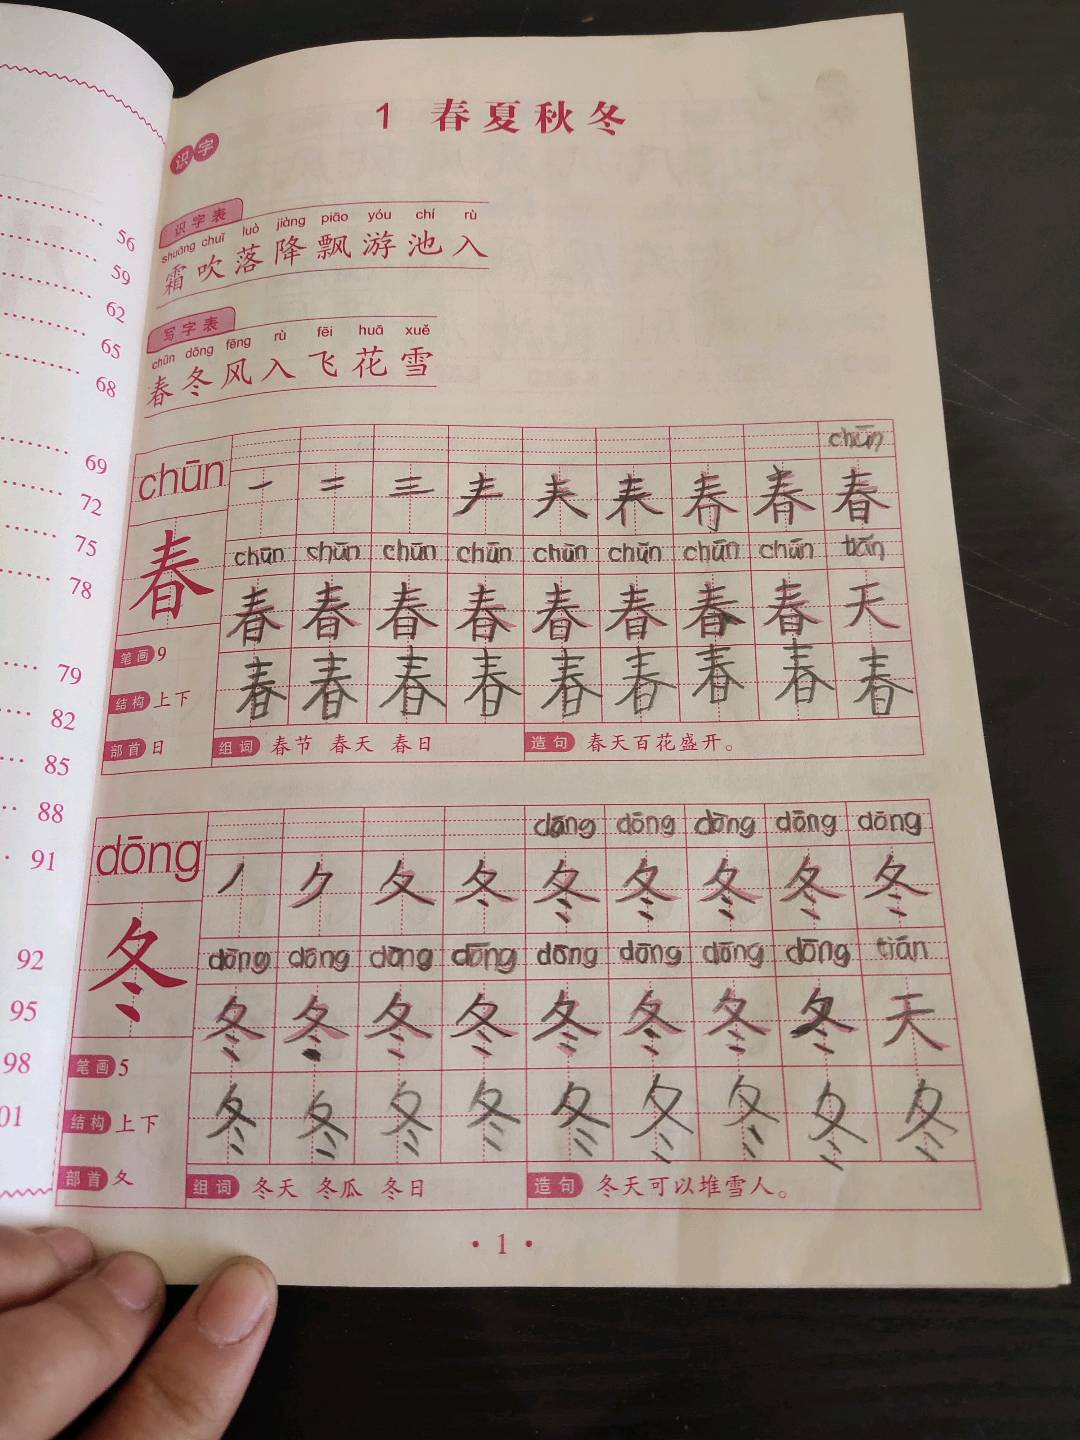 56
59
62
65
68
69
72
75
78
79
82
85
88
91
92
95
98
01
1 春夏秋冬
识字
识字表
shuāng chuī luò jiàng piāo yóu chí rù
霜吹落降飘游池入
写字表
chūn dōng fēng rù fēi huā xuě
春冬风入飞花雪
chūn
chūn
春
一 二 三 𡗗 春 春 春
chūn chūn chūn chūn chūn chūn chūn chūn tiān
春 春 春 春 春 春 春 春 天
春 春 春 春 春 春 春 春 春
笔画 9
结构 上下
部首 日
组词 春节 春天 春日 造句 春天百花盛开。
dōng
dōng dōng dōng dōng dōng
冬
丿 ク 夂 冬 冬 冬 冬 冬 冬
dōng dōng dōng dōng dōng dōng dōng dōng tiān
冬 冬 冬 冬 冬 冬 冬 冬 天
冬 冬 冬 冬 冬 冬 冬 冬 冬
笔画 5
结构 上下
部首 夂
组词 冬天 冬瓜 冬日 造句 冬天可以堆雪人。
·1·